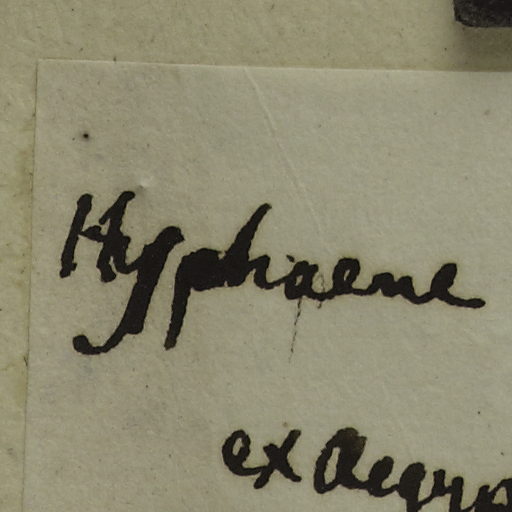 Hyphaene
ex Aegyp